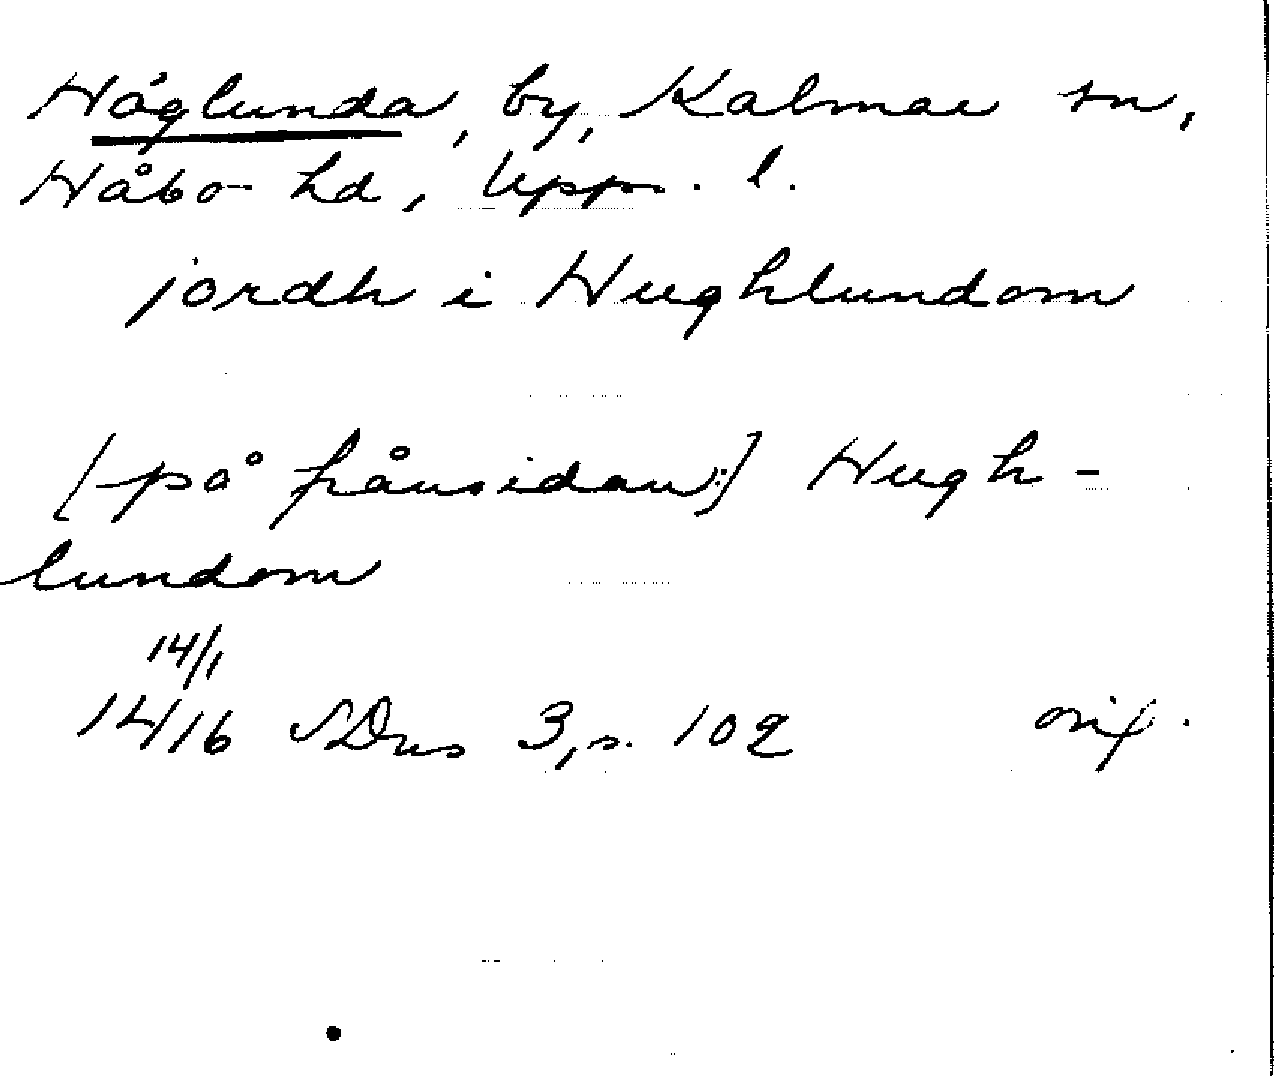 Höglunda, by, Kalmar sn,
Håbo hd, Upps. l.
jordh i Hughlundom
[på frånsidan:] Hugh-
lundom
14/1
1416 SDns 3, s. 102 orig.